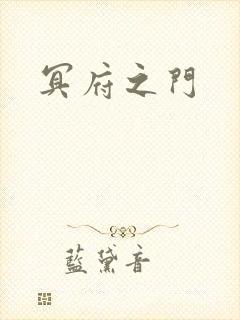 冥府之門
藍黛音